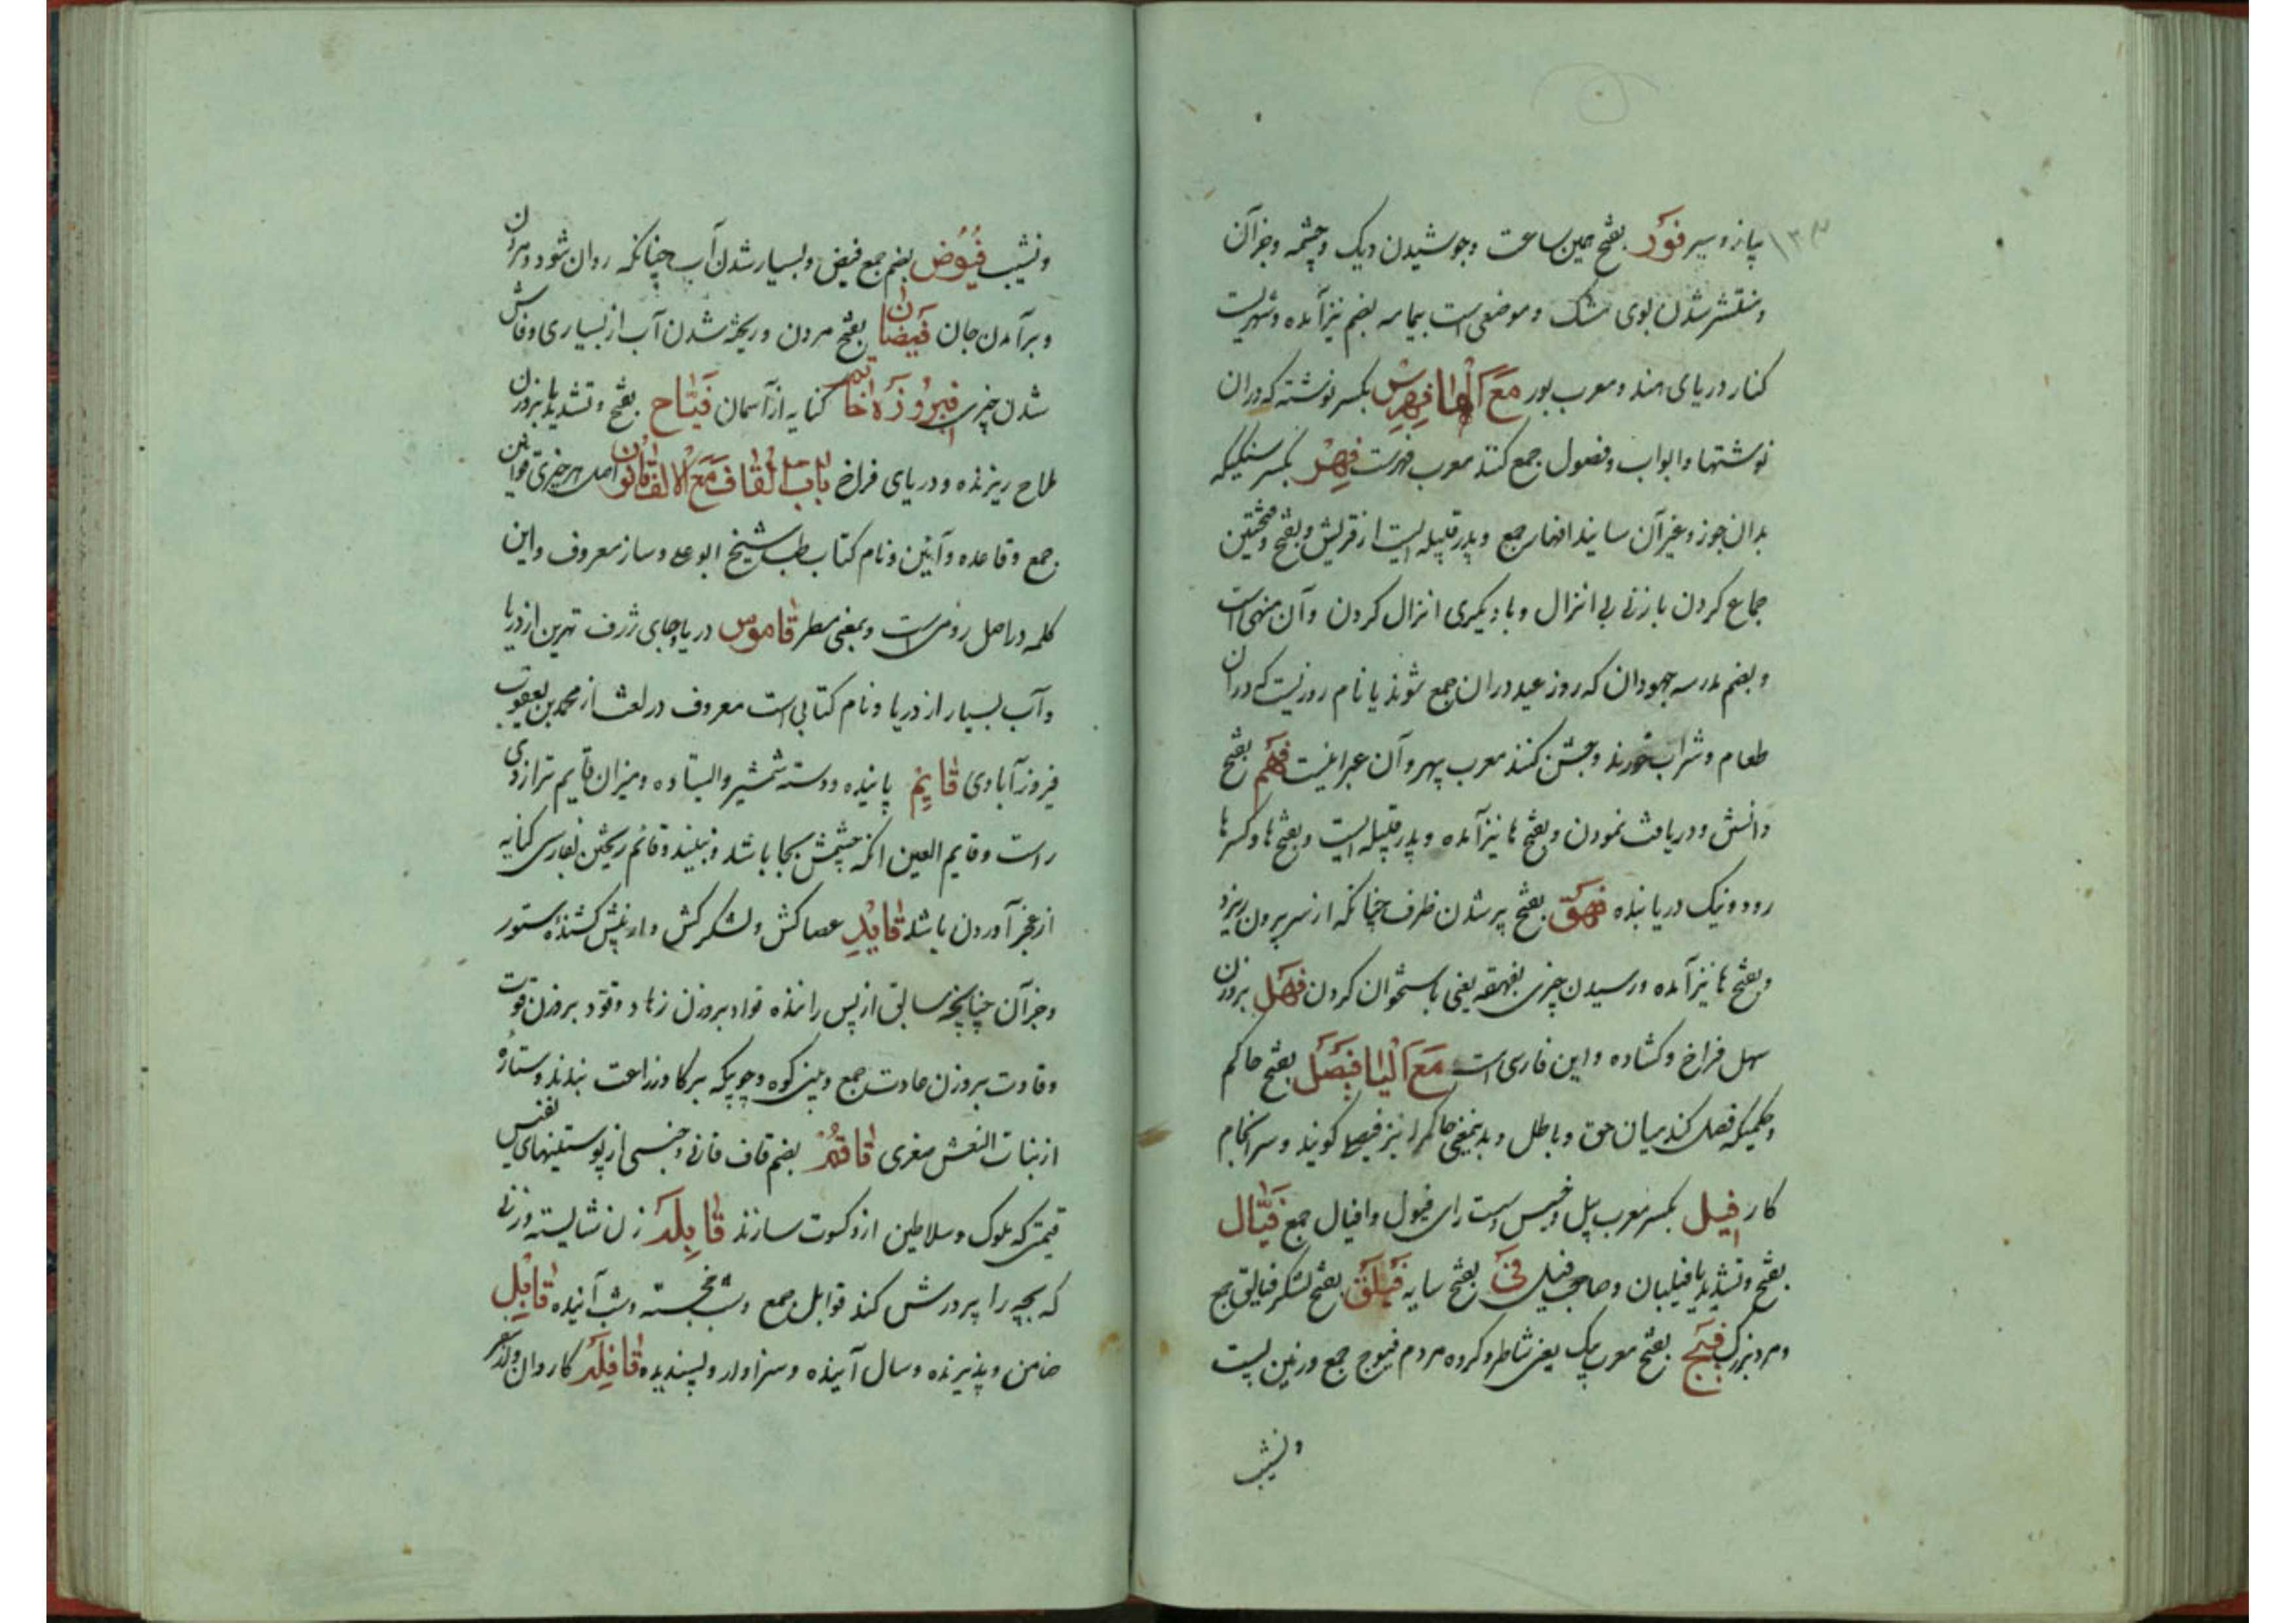 ۱۳۳
پیاز و سیر فَوْر بفتح همین ساعت و جوشیدن دیک و چشمه و جز آن
و منتشر شدن بوی مشک و موضعی است بیمامه بضم نیز آمده و شهریست
کنار دریای هند و معرب پور مَعَ الْهَا فِهْرِسْ بکسر نوشته که دران
نوشتها و ابواب و فصول جمع کنند معرب فهرست فِهْر بکسر سنکیکه
بدان جوز و غیر آن سایند افهار جمع و پدر قبیله ایست از قریش و بفتح و فتحتین
جماع کردن با زنی بی انزال و با دیکری انزال کردن و آن منهی است
و بضم مدرسه جهودان که روز عید دران جمع شوند یا نام روزیست که دران
طعام و شراب خورند و جشن کنند معرب بهر و آن عبرانیست فَهْم بفتح
دانش و دریافت نمودن و بفتح ها نیز آمده و پدر قبیله ایست و بفتح ها و کسر ها
زود و نیک دریابنده فَهَق بفتح پر شدن ظرف چنانکه از سر بیرون ریزد
و بفتح ها نیز آمده و رسیدن چیزی بفهقه یعنی باستخوان کردن فَهْل بروزن
سهل فراخ و کشاده و این فارسی است مَعَ الْیَا فَیْصَل بفتح حاکم
و حکمیکه فصل کند میان حق و باطل و بدینمعنی حاکم را نیز فیصل کویند و سرانجام
کار فِیل بکسر معرب پیل و خسیس و سست رای فیول و افیال جمع فَیَّال
بفتح و تشدید یا فیلبان و صاحب فیل فَیْ بفتح سایه فَیْلَق بفتح لشکر فیالق جمع
و مرد بزرک فَیْج بفتح معرب پیک یعنی شاطر و کروه مردم فیوج جمع و زمین پست
ونشیب
ونشیب فُیُوض بضم جمع فیض و بسیار شدن آب چنانکه روان شود و مردن
و برآمدن جان فَیَضَان بفتح مردن و ریخته شدن آب از بسیاری و فاش
شدن چیزی فِیرُوزَه خَاتَم کنایه از آسمان فَیَّاح بفتح و تشدید یا بروزن
ملاح ریزنده و دریای فراخ بَابُ الْقَاف مَعَ الْاَلِف قَانُون اصل هر چیزی قوانین
جمع و قاعده و آیین و نام کتاب طب شیخ ابو علی و ساز معروف و این
کلمه در اصل رومی است و بمعنی مسطر قَامُوس دریا و جای ژرف ترین از دریا
و آب بسیار از دریا و نام کتابی است معروف در لغت از محمد بن یعقوب
فیروز آبادی قَایِم پاینده و دسته شمشیر و ایستاده و میزان قایم ترازوی
راست و قایم العین انکه چشمش بجا باشد و نبیند و قائم ریختن بفارسی کنایه
از عجز آوردن باشد قَایِد عصا کش و لشکر کش و از پیش کشندهٔ ستور
و جز آن چنانچه سایق از پس راننده قواد بروزن زهاد و قود بروزن قوت
و قادت بروزن حادت جمع و بینی کوه و چوبیکه بر کاو زراعت بندند و ستارهٔ
از بنات النعش صغری قَاقُم بضم قاف ثانی و جنسی از پوستینهای نفیس
قیمتی که ملوک و سلاطین ازو کسوت سازند قَابِلَه زن شایسته و زنی
که بچه را پرورش کند قوابل جمع و شب خجسته و شب آینده قَابِل
ضامن و پذیرنده و سال آینده و سزاوار و پسندیده قَافِلَه کاروان و از سفر